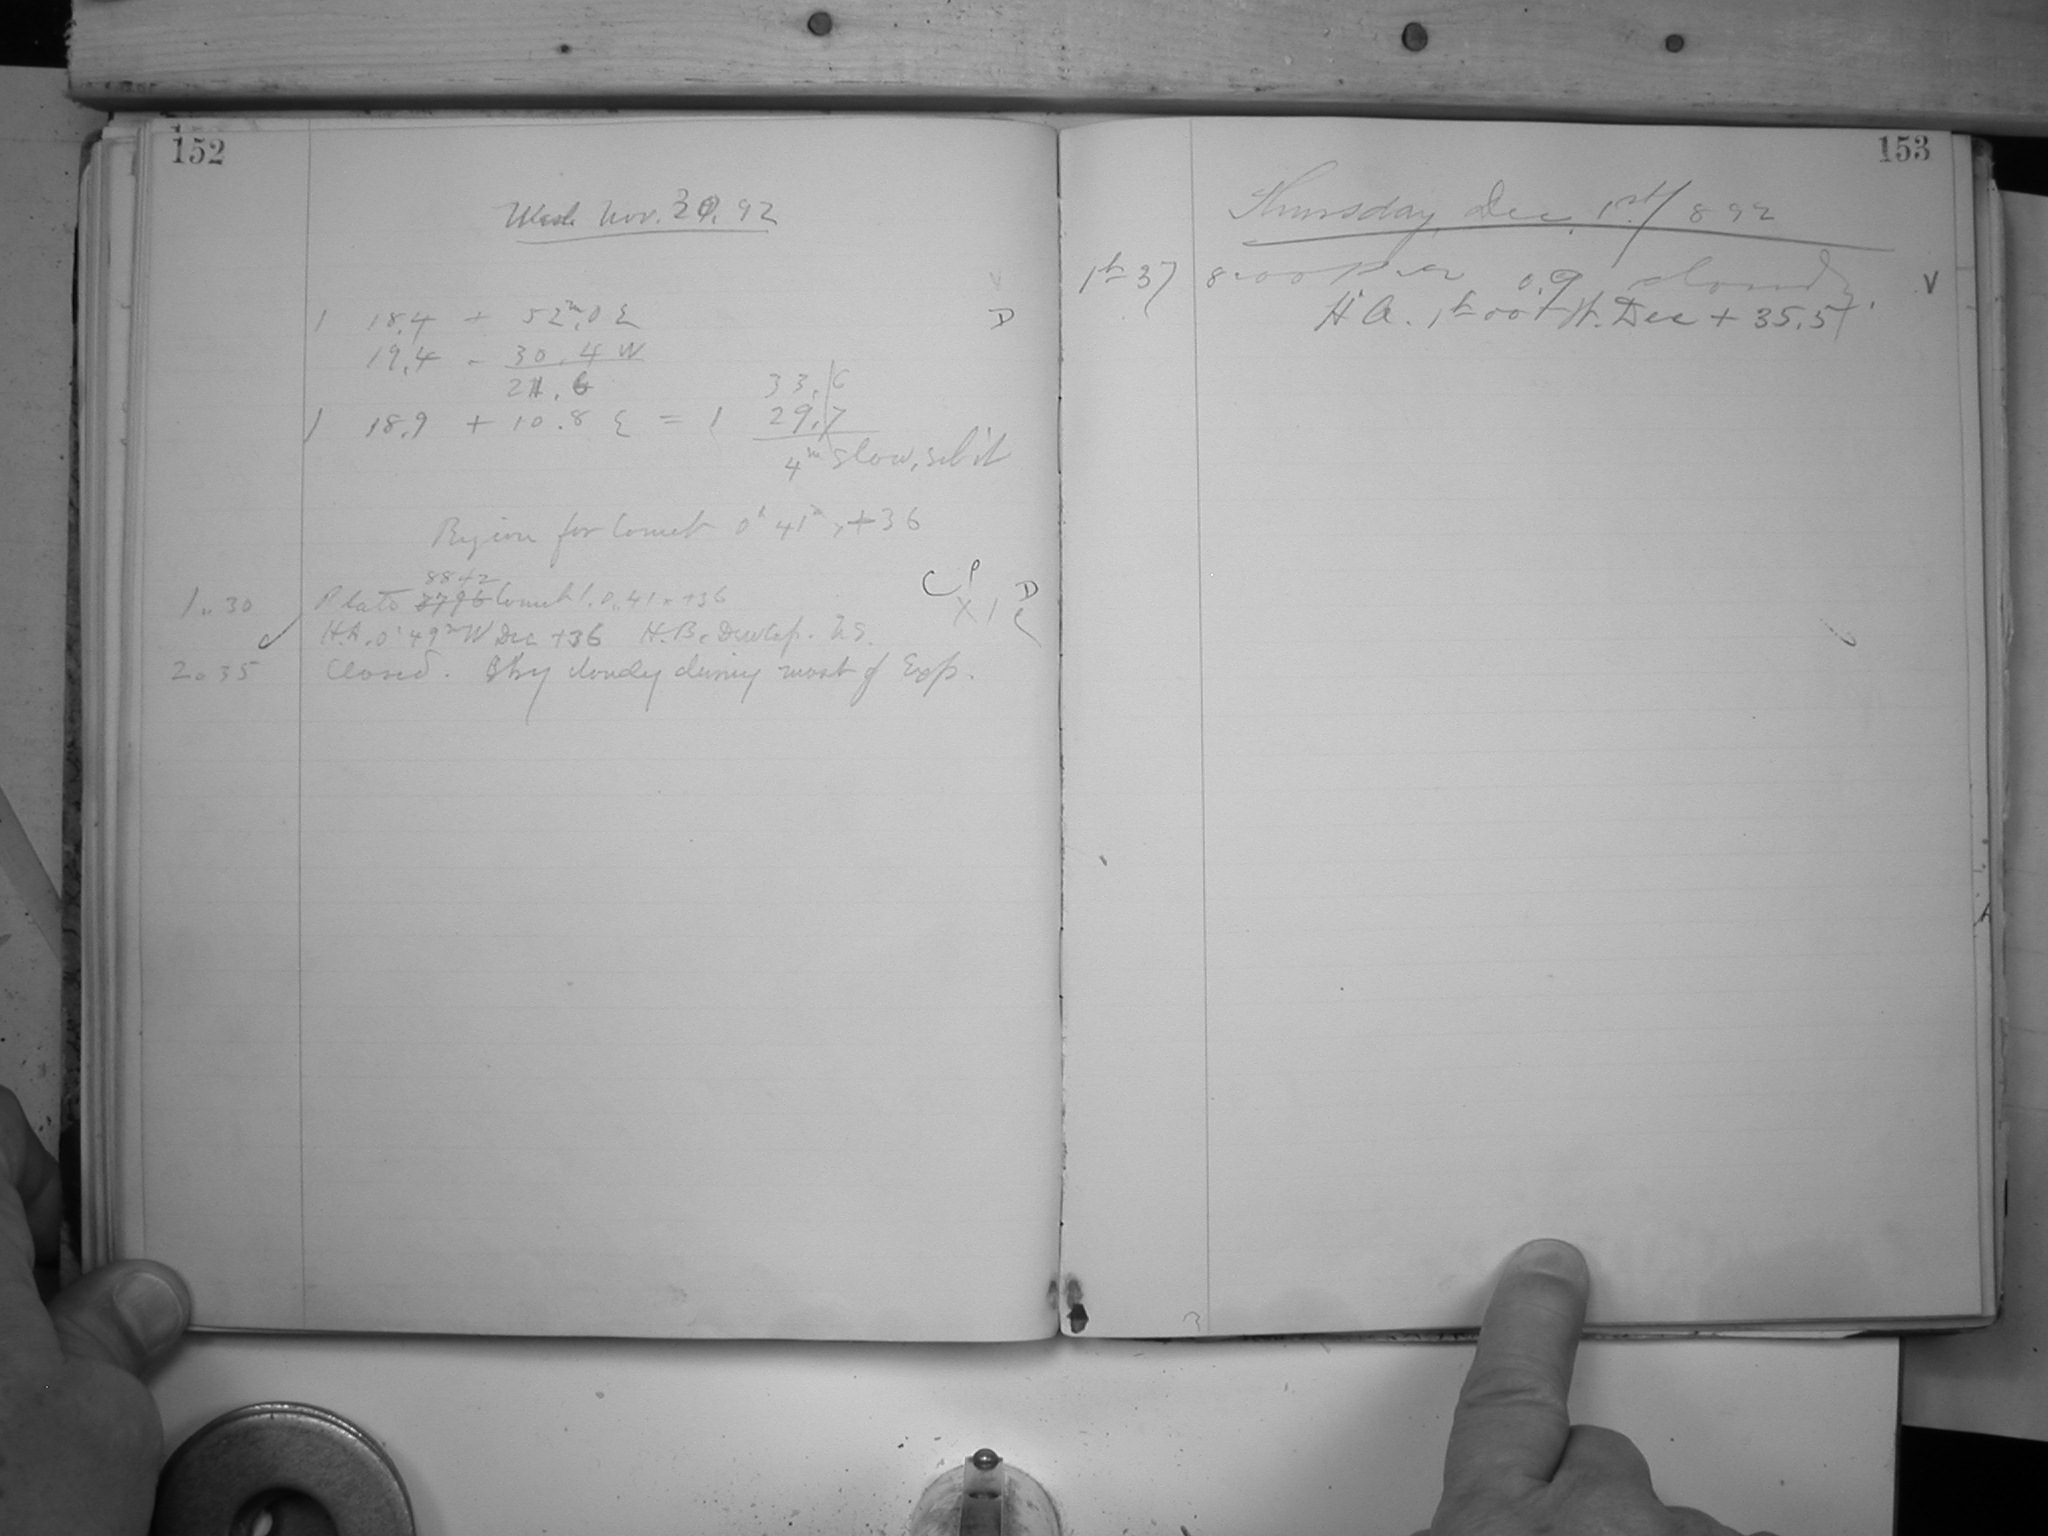 152
Wed. Nov. 30, 92
V
1 18.4 + 52ᵐ.0 E D
19.4 - 30.4 W
21.6 33.6
1 18.9 + 10.8 E = 1 29.7
4ᵐ slow, set it
Region for Comet 0ʰ 41ᵐ, +36
8842 C P D
1..30 Plate 8796 Comet 1. 0..41. +36 X 1 E
H.A. 0ʰ 49ᵐ W Dec +36 H.B.
2..35 Closed. Sky cloudy during most of Exp.
153
Thursday, Dec. 1st/892
1ʰ 37 0.9 cloudy V
H A. 1ʰ 00ᵐ W. Dec + 35.5